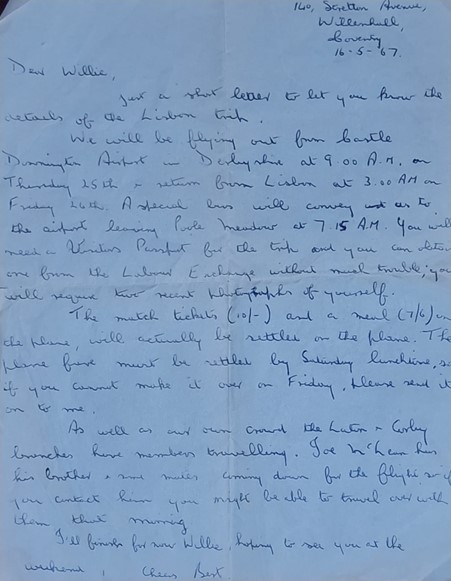 140, Stretton Avenue,
Willenhall,
Coventry
16-5-67.
Dear Willie,
Just a short letter to let you know the
details of the Lisbon trip.
We will be flying out from Castle
Donnington Airport in Derbyshire at 9.00 A.M. on
Thursday 25th & return from Lisbon at 3.00 AM on
Friday 26th. A special bus will convey us to
the airport leaving Pool Meadow at 7.15 A.M. You will
need a Visitors Passport for the trip and you can obtain
one from the Labour Exchange without much trouble, you
will require two recent photographs of yourself.
The match tickets (10/-) and a meal (7/6) on
the plane, will actually be settled on the plane. The
plane fare must be settled by Saturday lunchtime, so
if you cannot make it over on Friday, please send it
on to me.
As well as our own crowd the Luton & Corby
branches have members travelling. Joe McLean has
his brother & some mates coming down for the flight so if
you contact him you might be able to travel over with
them that morning
I'll finish for now Willie, hoping to see you at the
weekend, Cheers Best